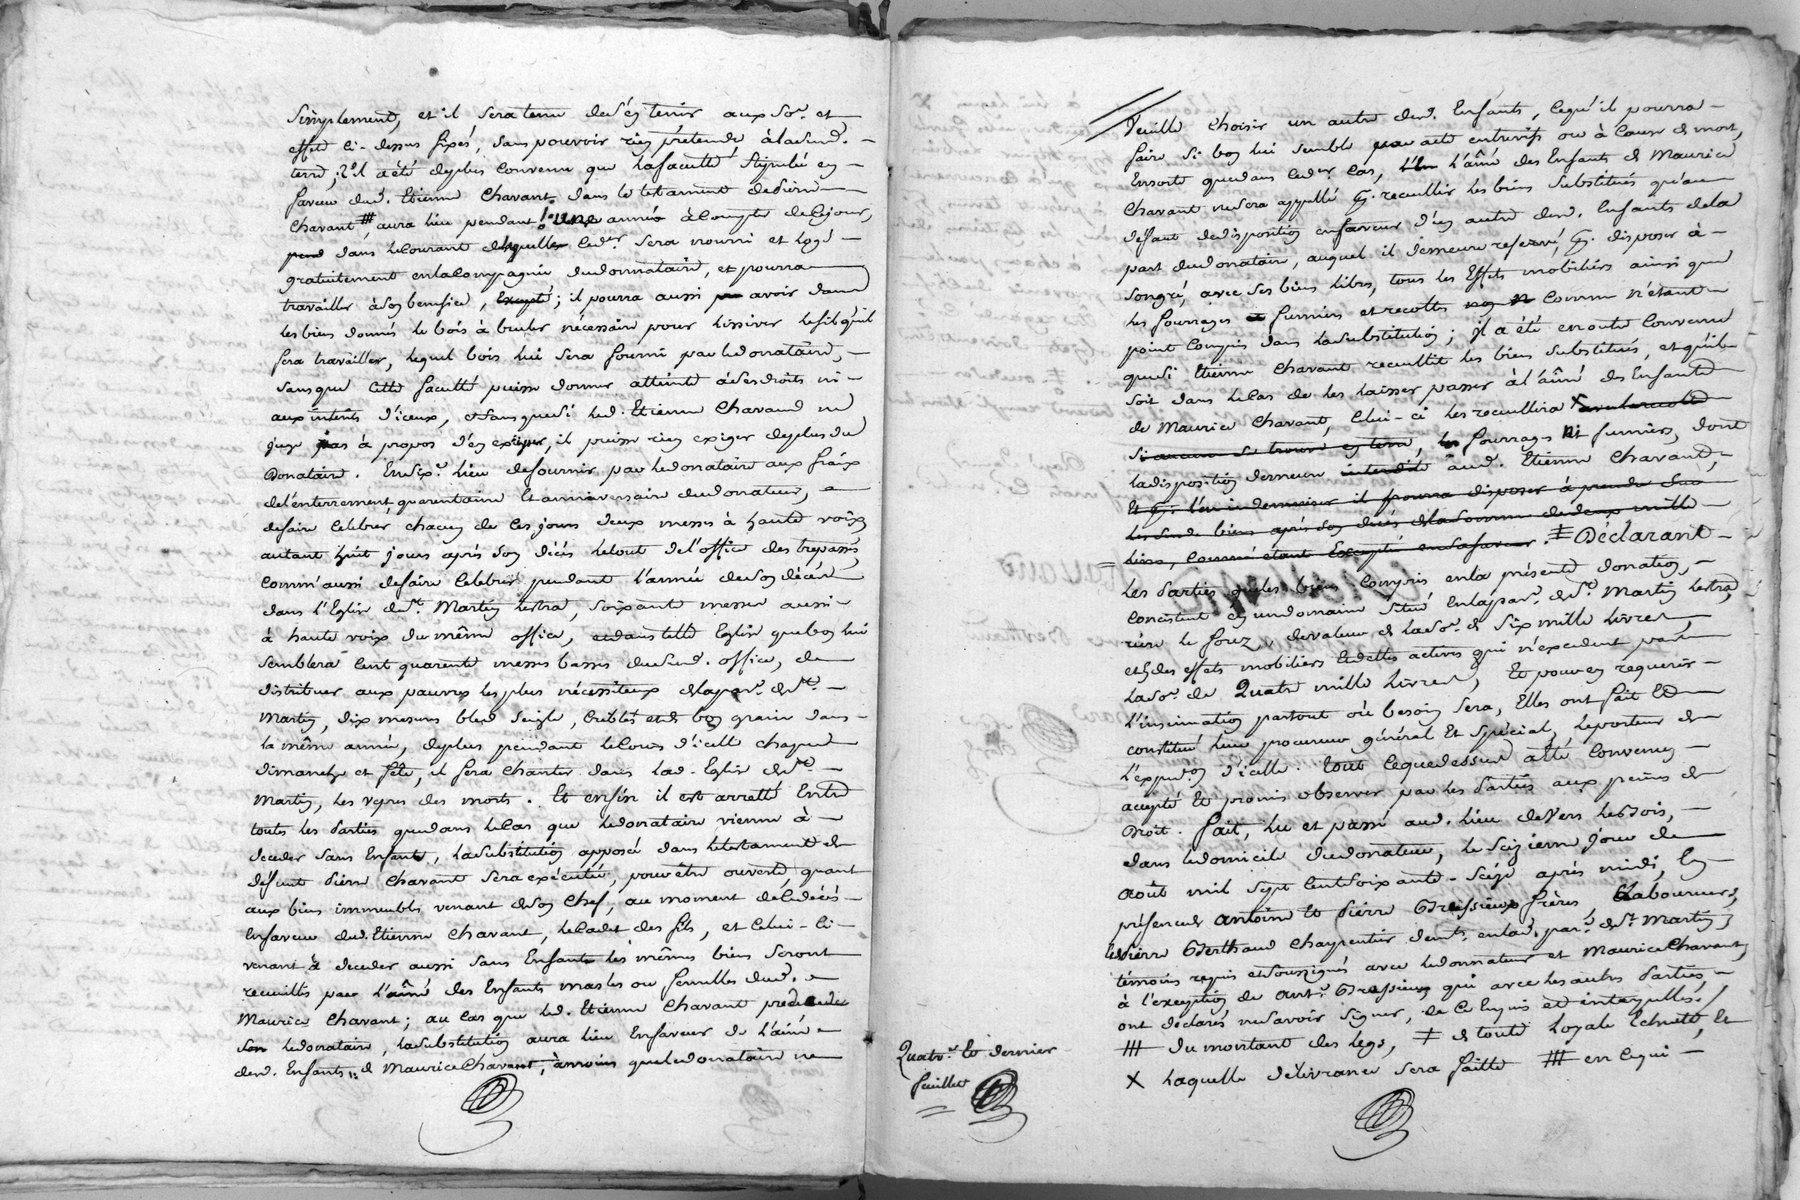 simplement, et il sera tenu de s'en tenir aux so.s et
effets ci-dessus fixés, sans pouvoir rien prétendre, à la susd. -
terre; il a été de plus convenu que la faculté stipulée en -
faveur dud. Etienne Chavant dans le testament de Pierre
Chavant # aura lieu pendant une année à compter de ce jour,
dans le courant de laquelle led.r sera nourri et logé -
gratuitement en la compagnie du donnataire, et pourra
travailler à son benefice, ; il pourra aussi avoir dans
les biens donnés le bois à bruler nécessaire pour lissiver le fil qu'il
fera travailler, lequel bois lui sera fourni par le donataire, -
sans que cette faculté puisse donner atteinte à ses droits ni -
aux intérêts d'iceux, et sans que si led. Etienne Chavand ne
juge pas à propos d'en exiger, il puisse rien exiger de plus du
Donataire. En six.e lieu de fournir par le donataire aux fraix
de l'enterrement, quarentaine et anniversaire du donateur, -
de faire celebrer chacun de ces jours deux messes à haute voix
autant huit jours après son décès le tout de l'office des trepassés
comm'aussi de faire celebrer pendant l'année de son décès
dans l'Eglise de St. Martin Lestra, soixante messes aussi -
à haute voix du même office, et dans telle Eglise que bon lui
semblera cent quarente messes basses du susd. office, de
distribuer aux pauvres les plus nécessiteux de la par.e de St. -
Martin, dix mesures bled seigle, criblés et de bon grain dans -
la même année, de plus pendant le cours d'icelle chaque
Dimanche et fête, il fera chanter dans lad. Eglise de St. -
Martin, les vepres des morts. Et enfin il est arretté entre
toutes les Parties que dans le cas que le donataire vienne à -
deceder sans Enfants, la substitution apposée dans le testament de
défunt Pierre Chavant sera exécutée, pour être ouverte, quant
aux biens immeubles venant de son chef, au moment de le décès -
En faveur dud. Etienne Chavant, le cadet des fils, et celui-ci -
venant à deceder aussi sans Enfants les mêmes biens seront
recueillis par l'aîné des Enfants masles ou femelles dud.
Maurice Chavant; au cas que led. Etienne Chavant predecede
le donataire, la substitution aura lieu En faveur de l'aîné
des d. Enfants de Maurice Chavant, à moins que le donataire ne
Veuille choisir un autre desd. Enfants, ce qu'il pourra -
faire si bon lui semble par acte entrevifs ou à cause de mort,
Ensorte que dans ce der cas, l'aîné des Enfants de Maurice
Chavant ne sera appellé p. recueillir les biens substitués qu'au
défaut de disposition en faveur d'un autre desd. Enfants de la
part du donataire, auquel il demeure reservé, p. disposer à -
son gré, avec ses biens libres, tous les Effets mobiliers ainsi que
les fourrages fumiers et recoltes comme n'étant
point compris dans la substitution; il a été en outre convenu
que si Etienne Chavant recueillit les biens substitués, et qu'il
soit dans le cas de les laisser passer à l'aîné des Enfants
de Maurice Chavant, celui-ci les recueillira X avec la recolte
si aucune se trouve en terre, les fourrages ni fumiers, dont
la disposition demeure interdite aud. Etienne Chavant,
Et p. l'en indemniser il pourra disposer à prendre sur
lesd. biens après son décès de la somme de deux mille
livres, comme étant Exceptée en sa faveur ‡ Déclarant -
les Parties que les biens compris en la présente donation, -
consistent en un domaine situé en la par.e de St. Martin Lestra,
riere le forez, de valeur de la so.e de six mille livres,
et des effets mobiliers et dettes actives qui n'excedent pas
la so.e de Quatre mille Livres, Et pour en requerir -
l'insinuation partout où besoin sera, Elles ont fait et
constitué leur procureur général Et spécial, le porteur de
l'expe.on d'icelle. tout ce que dessus a été convenu -
accepté Et promis observer par les Parties aux peines de
Droit. fait, lu et passé aud. lieu de Vers les Bois, -
dans le domicile du donateur, le seizieme jour de
août mil sept cent soixante-seize après midi, En
présence de Antoine Et Pierre Bressieux frères, Laboureurs,
et Pierre Berthaud charpentier dem.ts en lad. par.e de St. Martin,
témoins requis et soussignés avec le donnateur et Maurice Chavant,
à l'exception de Ant.e Bressieux qui avec les autres Parties -
ont déclarés ne savoir signer, de ce enquis et interpellés./.
# du montant des legs, ‡ de toute loyale Echute, Et
X laquelle délivrance sera faitte # en ce qui -
Quatr.e Et dernier
feuillet